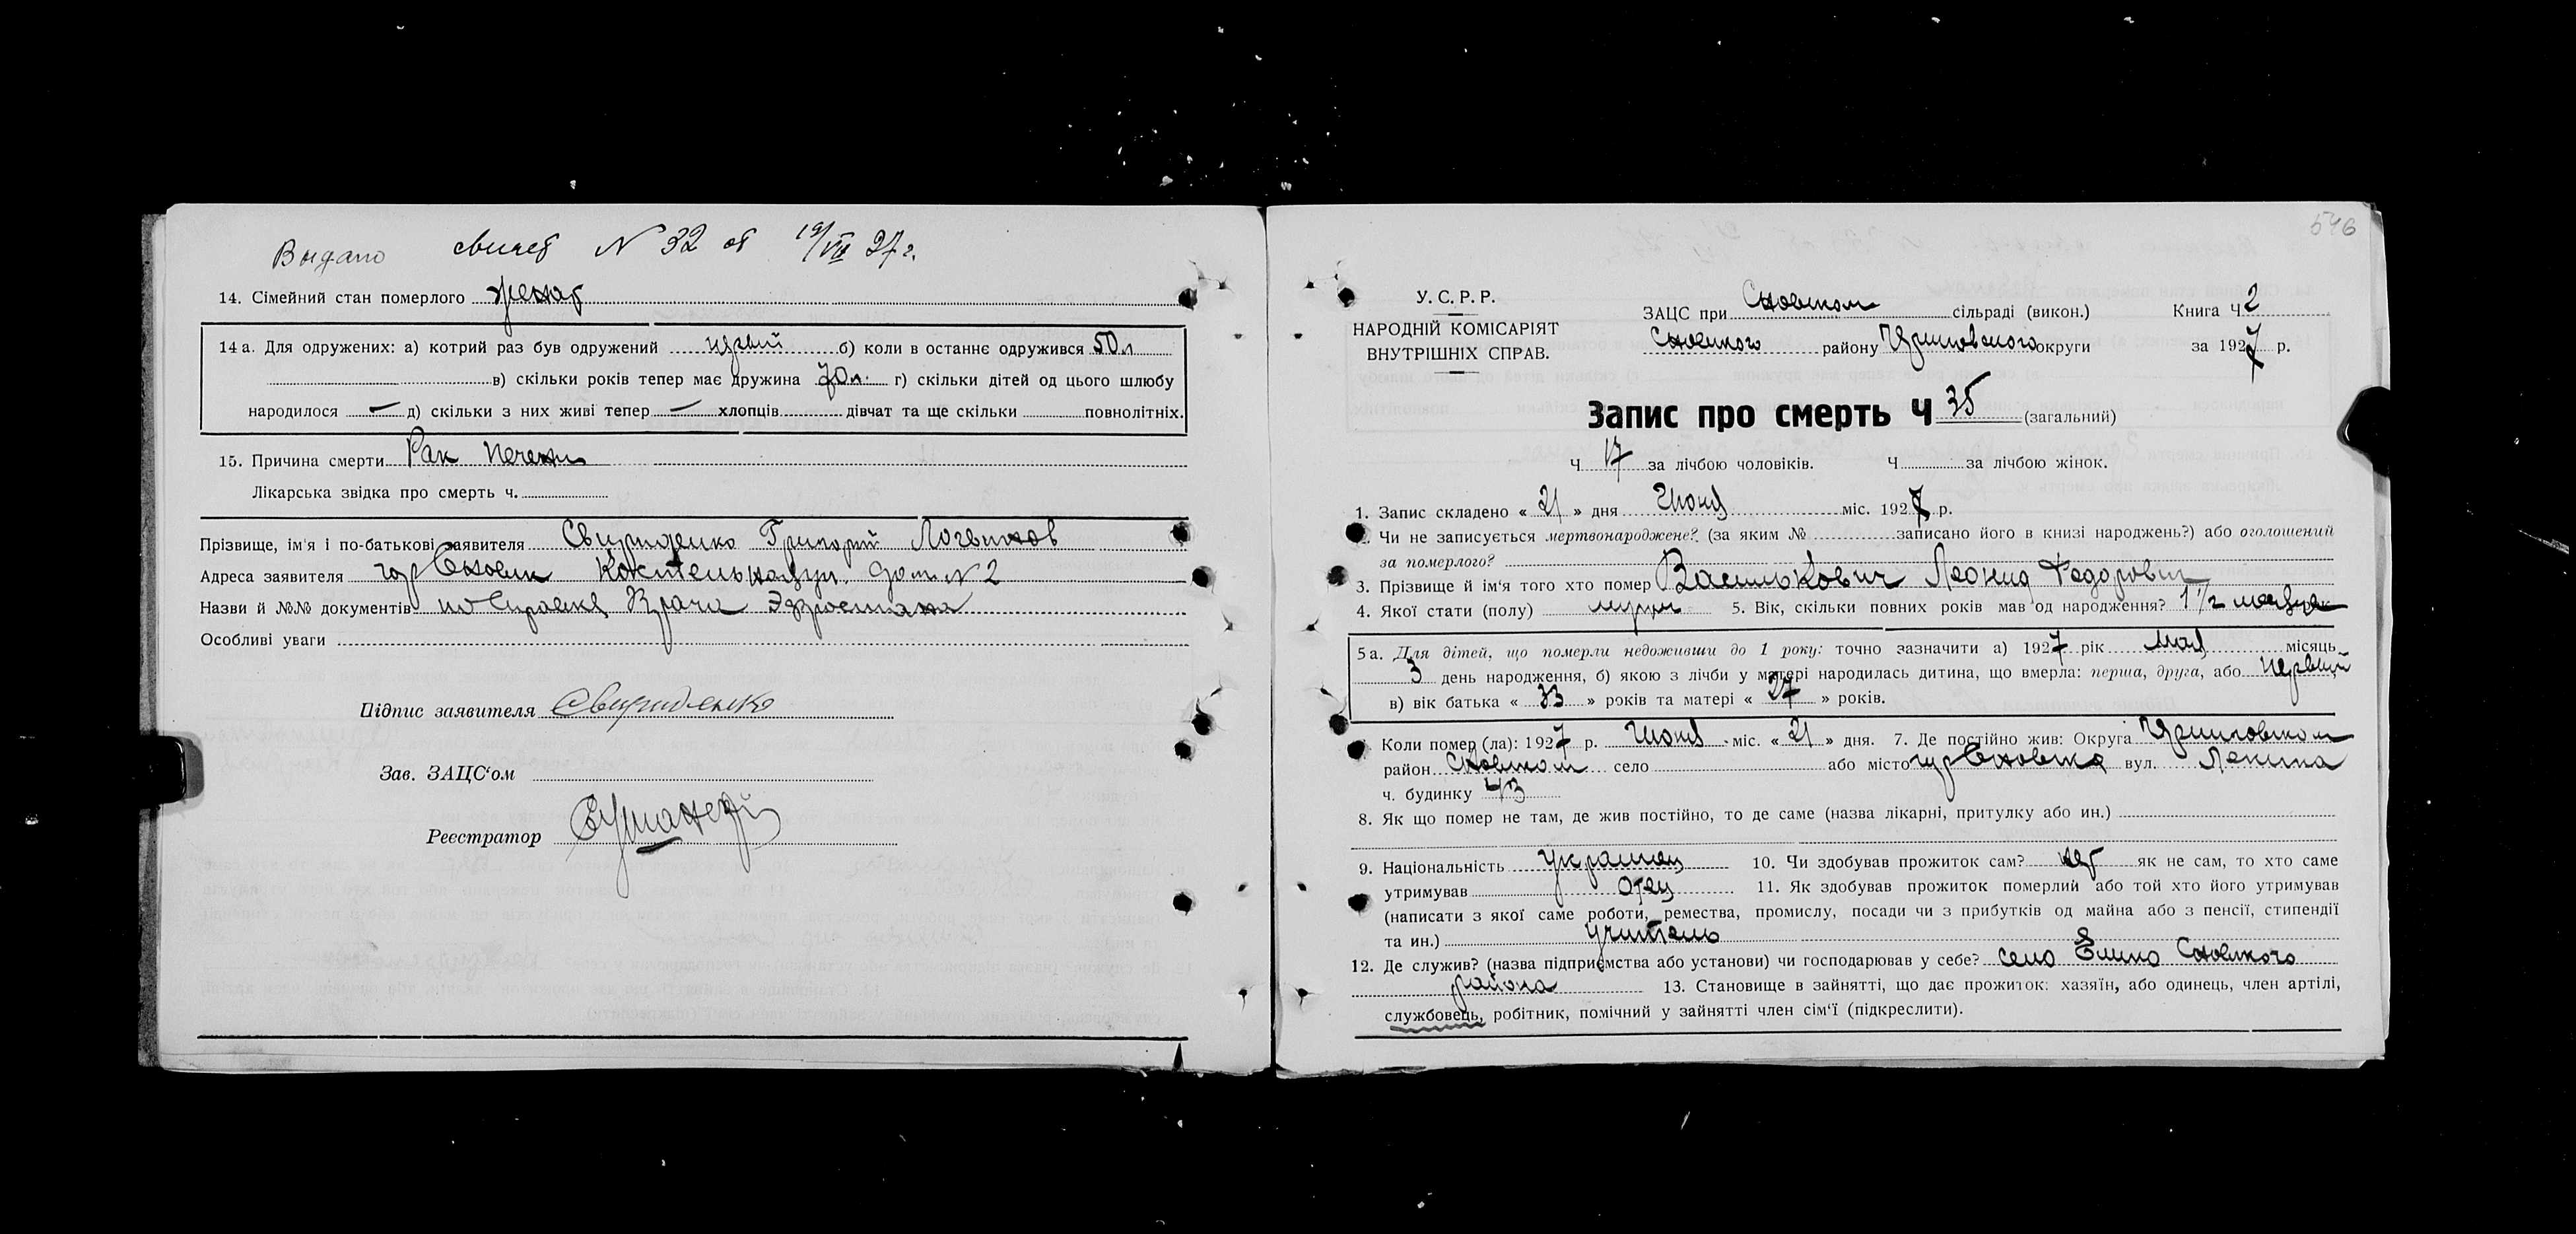 Выдано свидет N 32 от 19/VII 27 г.
14. Сімейний стан померлого женат
14 а. Для одружених: а) котрий раз був одружений первый б) коли в останнє одружився 50 л
в) скільки років тепер має дружина 70 л. г) скільки дітей од цього шлюбу
народилося — д) скільки з них живі тепер — хлопців дівчат та ще скільки повнолітніх.
15. Причина смерти Рак печени
Лікарська звідка про смерть ч.
Прізвище, ім'я і по-батькові заявителя Свириденко Григорий Логвинов
Адреса заявителя гор Сновск Костельная ул. дом N 2
Назви й №№ документів по справке Врача
Особливі уваги
Підпис заявителя Свириденко
Зав. ЗАЦС'ом
Реєстратор
546
У. С. Р. Р.
НАРОДНІЙ КОМІСАРІЯТ
ВНУТРІШНІХ СПРАВ.
ЗАЦС при Сновском сільраді (викон.) Книга Ч 2
Сновского району округи за 1927 р.
Запис про смерть Ч 35 (загальний)
Ч 17 за лічбою чоловіків. Ч за лічбою жінок.
1. Запис складено « 21 » дня Июня міс. 1927 р.
Чи не записується мертвонароджене? (за яким № записано його в книзі народжень?) або оголошений
за померлого?
3. Прізвище й ім'я того хто помер Василькович Леонид Федорович
4. Якої стати (полу) мужч 5. Вік, скільки повних років мав од народження? 1 1/2 месяца
5 а. Для дітей, що померли недоживши до 1 року: точно зазначити а) 1927 рік Мая місяць
3 день народження, б) якою з лічби у матері народилась дитина, що вмерла: перша, друга, або первый
в) вік батька « 33 » років та матері « 27 » років.
Коли помер (ла): 1927 р. Июня міс. « 21 » дня. 7. Де постійно жив: Округа
район Сновском село або місто гор Сновска вул. Ленина
ч. будинку 43
8. Як що помер не там, де жив постійно, то де саме (назва лікарні, притулку або ин.)
9. Національність украинец 10. Чи здобував прожиток сам? нет як не сам, то хто саме
утримував отец 11. Як здобував прожиток померлий або той хто його утримував
(написати з якої саме роботи, ремества, промислу, посади чи з прибутків од майна або з пенсії, стипендії
та ин.) учитель
12. Де служив? (назва підприємства або установи) чи господарював у себе? село Елино Сновского
района 13. Становище в зайнятті, що дає прожиток: хазяїн, або одинець, член артілі,
службовець, робітник, помічний у зайнятті член сім'ї (підкреслити).